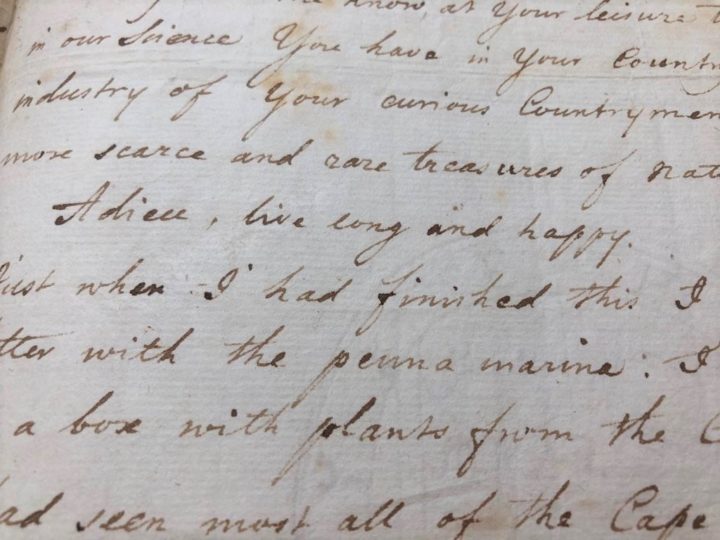 know, at Your leisure
in our Science You have in Your Country
industry of Your curious Countrymen
more scarce and rare treasures of nat
Adieu, live long and happy.
Just when I had finished this I
tter with the penna marina: I
a box with plants from the C
ad seen most all of the Cape